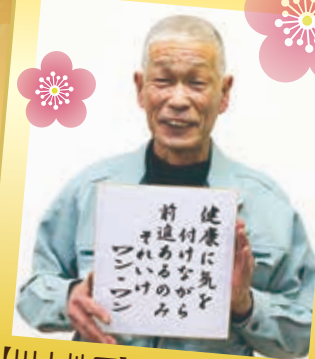 健康に気を
付けながら
前進あるのみ
それいけ
ワン・ワン